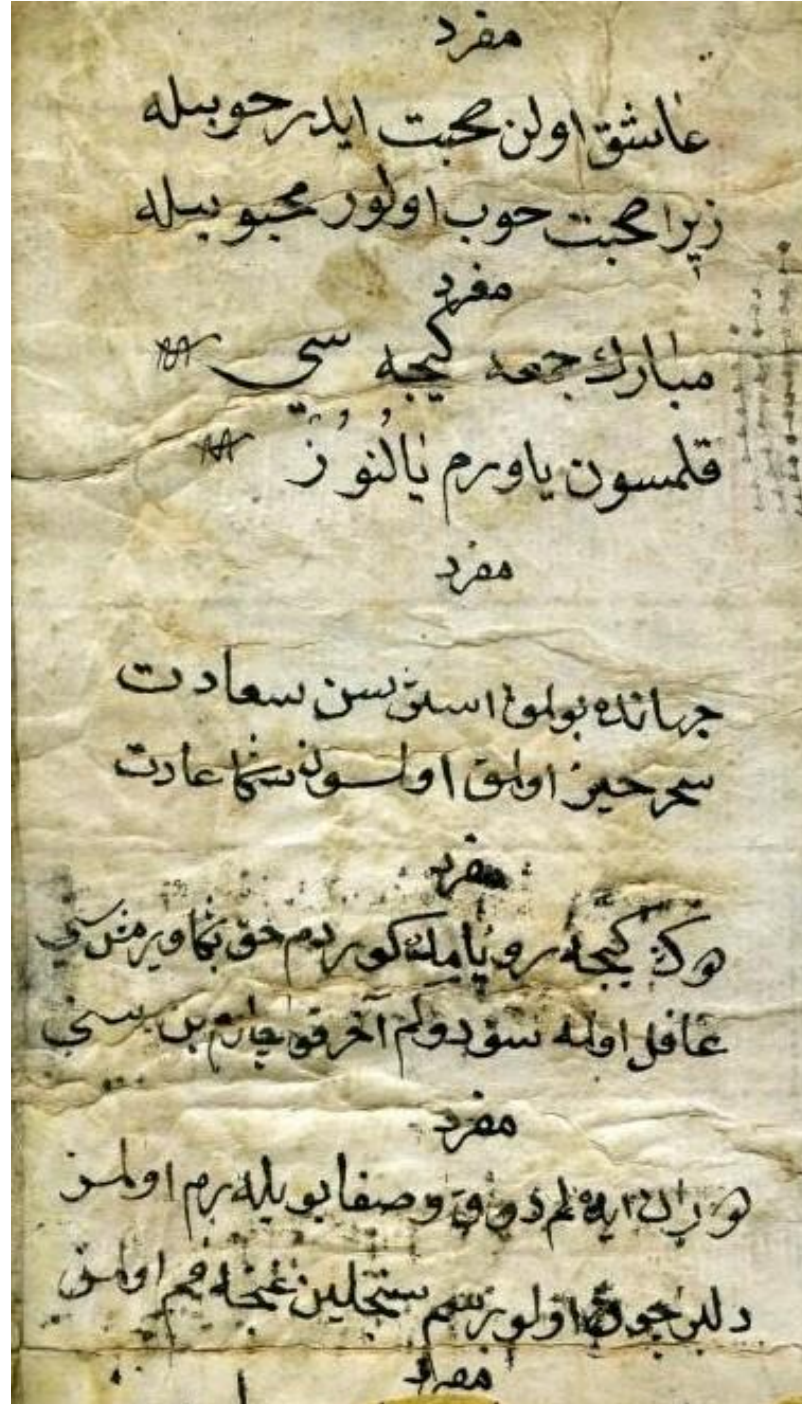 مفرد
عاشق اولن صحبت ايدر خوبيله
زيرا صحبت خوب اولور محبوبيله
مفرد
مبارك جمعه كيجه سي
قلمسون ياورم يالُنُوُز
مفرد
جهانده بولمق استرسن سعادت
سحرخيز اولمق اولسون سڭا عادت
مفرد
بو كيجه رويامده كوردم حق بڭا ويرمش سني
غافل اولمه سوديكم آخر قوچارم بن سني
مفرد
ايده لم ذوق وصفا بويله بزم اولمز
دلبر چوق اولور سنجلين غنچه فم اولمز
مفرد